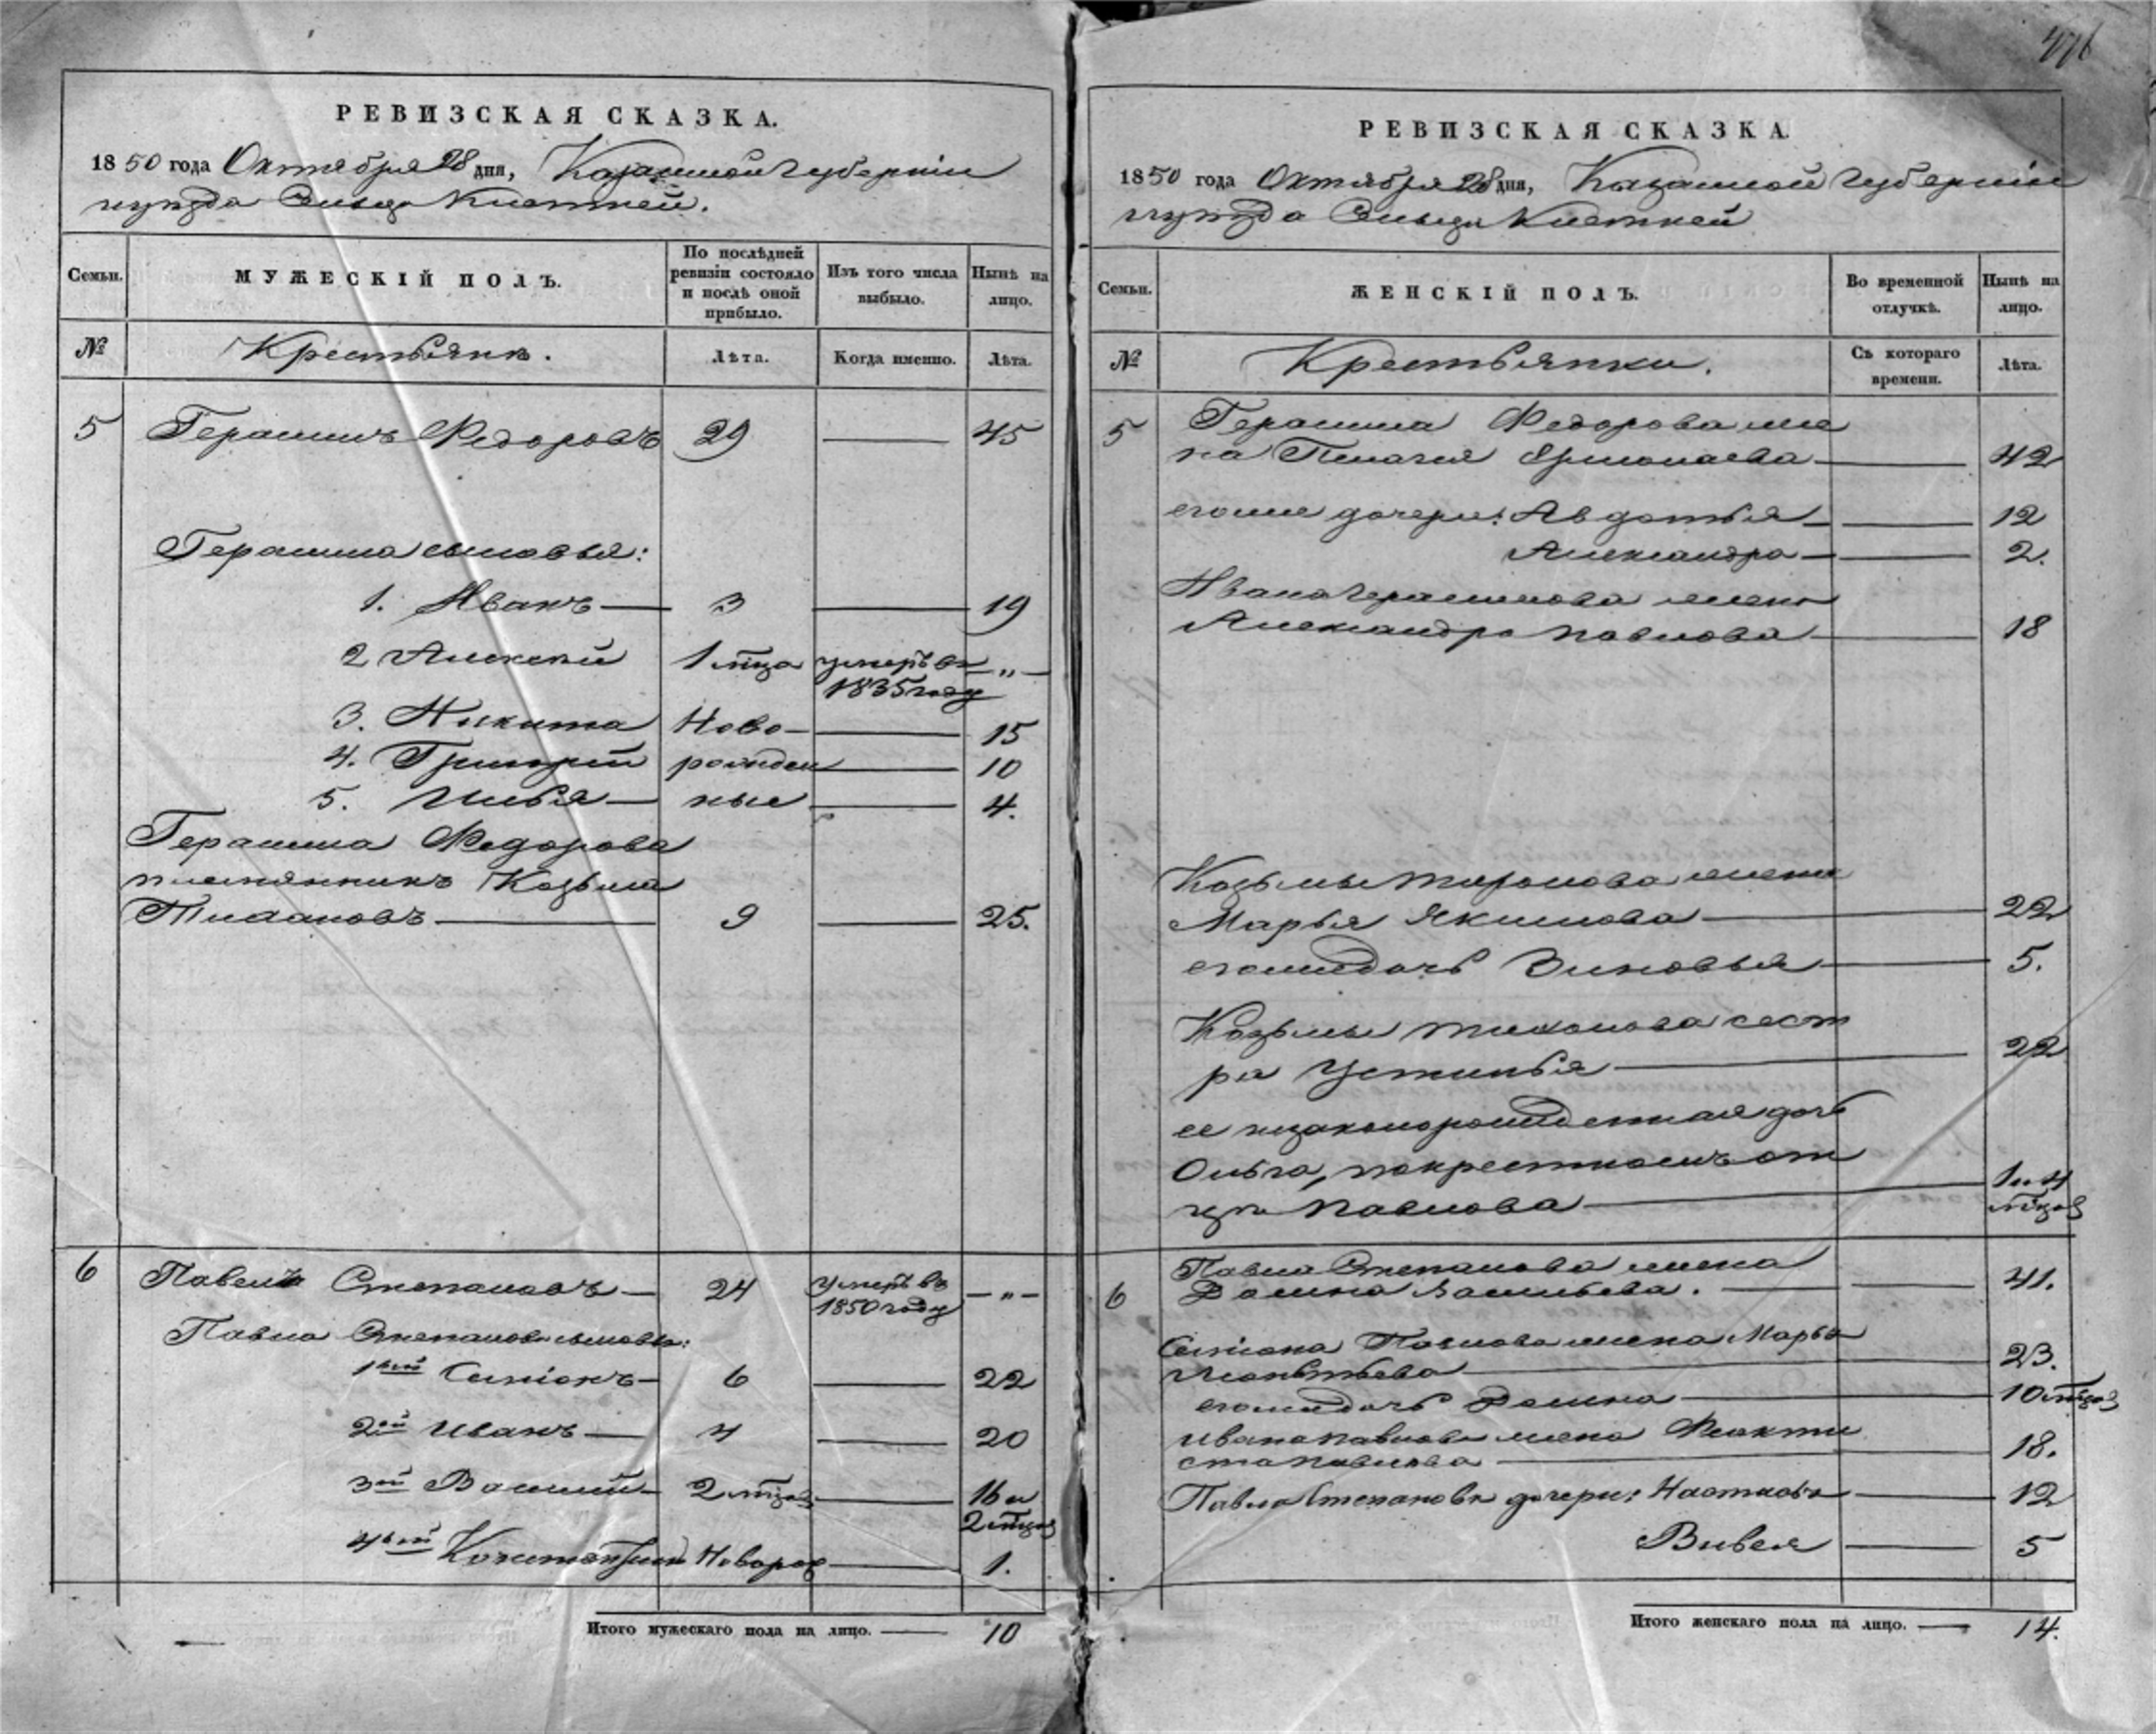 476
РЕВИЗСКАЯ СКАЗКА.
1850 года Октября 28 дня, Казанской Губерніи
уѣзда
Семьи.
МУЖЕСКІЙ ПОЛЪ.
По послѣдней ревизіи состояло и послѣ оной прибыло.
Изъ того числа выбыло.
Нынѣ на лицо.
№
Крестьянъ.
Лѣта.
Когда именно.
Лѣта.
5 Герасимъ Федоровъ 29 — 45
Герасима сыновья:
1. Иванъ — 3 — 19
2 Алексѣй 1 мѣца умеръ въ 1835 году — „ —
3. Никита Ново- — 15
4. Григорій рожден — 10
5. Илья — ные — 4.
Герасима Федорова
племянникъ Козьма
Тихановъ — 9 — 25.
6 Павелъ Степановъ — 24 умеръ въ 1850 году — „ —
Павла Степанова сыновья:
1ый Симіонъ — 6 — 22
2ой Иванъ — 4 — 20
3ій Василій — 2 мѣцов — 16 и 2 мѣцов
4ый Константинъ Новорож — 1.
Итого мужескаго пола на лицо. — 10
РЕВИЗСКАЯ СКАЗКА.
1850 года Октября 28 дня, Казанской Губерніи
уѣзда
Семьи.
ЖЕНСКІЙ ПОЛЪ.
Во временной отлучкѣ.
Нынѣ на лицо.
№
Крестьянки.
Съ котораго времени.
Лѣта.
5 Герасима Федорова же
на Пелагея Ермолаева — 42
егоже дочери: Авдотья — 12
Александра — 2.
Ивана Герасимова жена
Александра Павлова — 18
Козьмы Тихонова жена
Марья Якимова — 22
егоже дочь Зиновья — 5.
Козьмы Тихонова сест
ра Устинья — 22
ее незаконорожденная дочь
Ольга, по крестномъ от
цѣ Павлова — 1 и 4 мѣцов
6 Павла Степанова жена
Домна Васильева. — 41.
Симіона Павлова жена Марья
Леонтьева — 23.
егоже дочь Домна — 10 мѣцов
Ивана Павлова жена Феокти
ста Павлова — 18.
Павла Степанова дочери: Настасья — 12
Вивея — 5
Итого женскаго пола на лицо. — 14.